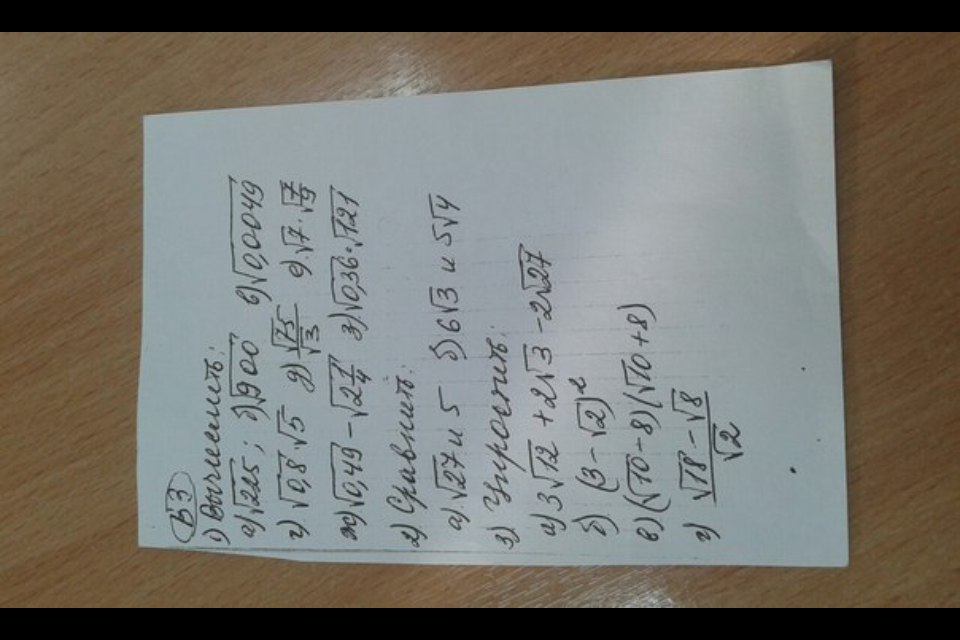 В3
1) Вычислить:
а) √225; б) √900 в) √0,0049
г) √0,8·√5 д) √75/√3 е) √7·√7/9
ж) √0,49 - √2 1/4 з) √0,36·√121
2) Сравнить:
а) √27 и 5 б) 6√3 и 5√4
3) Упростить:
а) 3√12 + 2√3 - 2√27
б) (3 - √2)²
в) (√10 - 8)(√10 + 8)
г) √18 - √8 / √2